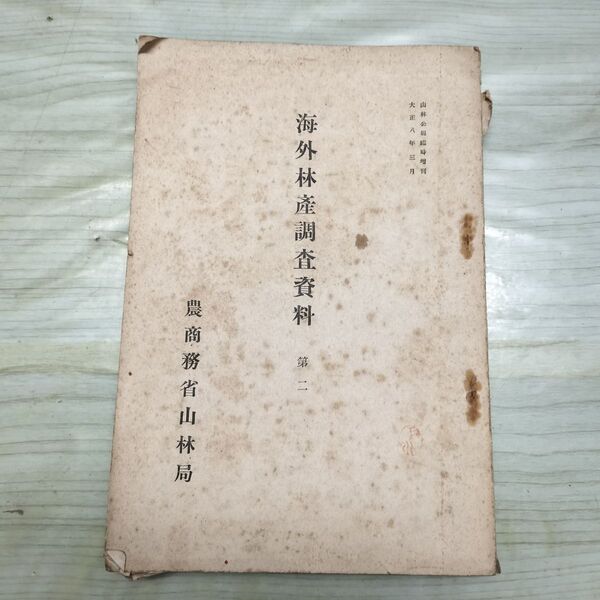 山林公報臨時増刊
大正八年三月
海外林產調査資料 第二
農商務省山林局